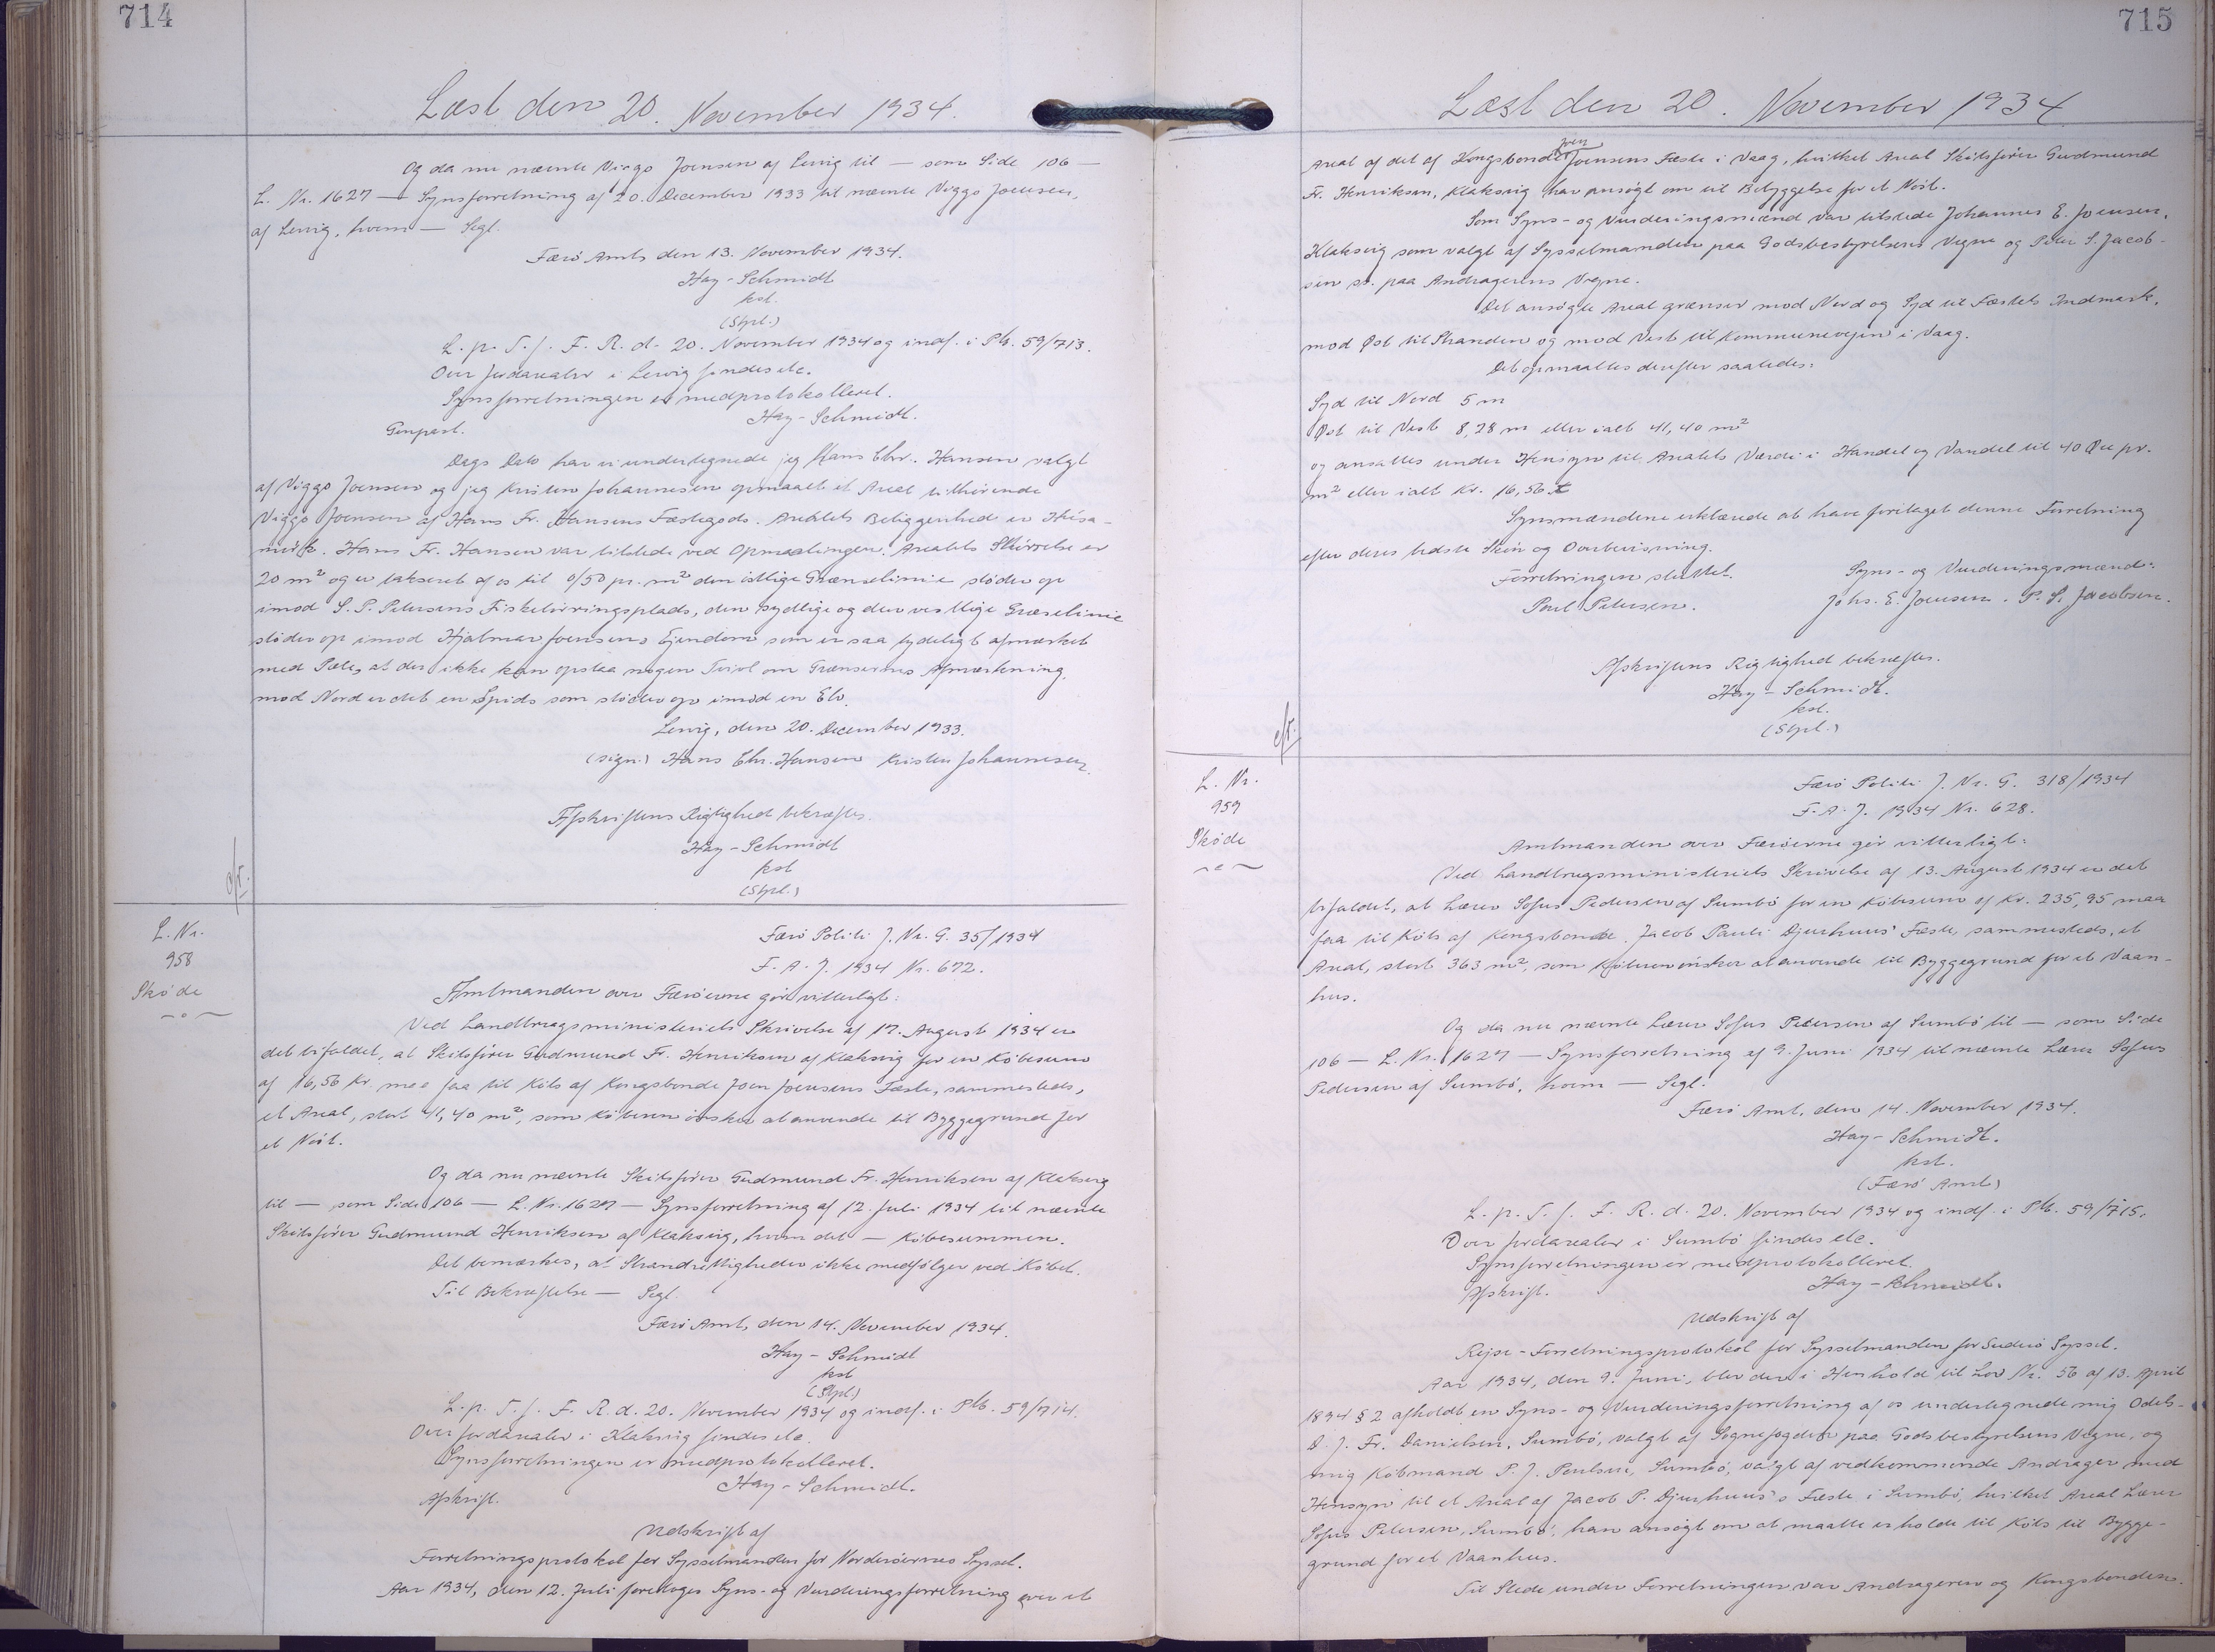 714
Læst den 20. November 1934.
Og da nu nævnte Viggo Joensen af Lervig til — som Side 106 —
L. Nr. 1627 — Synsforretning af 20. December 1933 til nævnte Viggo Joensen,
af Lervig, hvem — Segl.
Færö Amt, den 13. November 1934.
Hay-Schmidt
kst.
(Stpl.)
L. p. T. f. F. R. d. 20. November 1934 og indf. i Ptk. 59/713.
Over Jordarealer i Lervig findes etc.
Synsforretningen er medprotokolleret.
Hay-Schmidt.
Genpart.
Dags Dato har vi undertegnede jeg Hans Chr. Hansen valgt
af Viggo Joensen og jeg Kristen Johannesen opmaalt et Areal tilhörende
Viggo Joensen af Hans Fr. Hansens Fæstegods. Arealets Beliggenhed er Húsa-
mörk. Hans Fr. Hansen var tilstede ved Opmaalingen. Arealets Störrelse er
20 m² og er takseret af os til 0/50 pr. m² den östlige Grænselinie stöder op
imod S. P. Petersens Fisketörringsplads, den sydlige og den vestlige Græselinie
stöder op imod Hjalmar Joensens Ejendom som er saa tydeligt afmærket
med Pæle, at der ikke kan opstaa nogen Tvivl om Grænsernes Afmærkning,
mod Nord er det en Spids som stöder op imod en Elv.
Lervig, den 20. December 1933.
(sign.) Hans Chr. Hansen Kristen Johannesen
Afskriftens Rigtighed bekræftes.
Hay-Schmidt
kst
(Stpl.)
L. Nr.
958
Sköde
Færö Politi J. Nr. G. 35/1934
F. A. J. 1934 Nr. 672.
Amtmanden over Færöerne gör vitterligt:
Ved Landbrugsministeriets Skrivelse af 17. August 1934 er
det bifaldet, at Skibsförer Gudmund Fr. Henriksen af Klaksvig for en Köbesum
af 16,56 Kr. maa faa til Köbs af Kongsbonde Joen Joensens Fæste, sammesteds,
et Areal, stort 41,40 m², som Köberen önsker at anvende til Byggegrund for
et Nöst.
Og da nu nævnte Skibsförer Gudmund Fr. Henriksen af Klaksvig
til — som Side 106 — L. Nr. 1627 — Synsforretning af 12. Juli 1934 til nævnte
Skibsförer Gudmund Henriksen af Klaksvig, hvem det — Köbesummen.
Det bemærkes, at Strandrettigheder ikke medfölger ved Köbet.
Til Bekræftelse — Segl.
Færö Amt, den 14. November 1934.
Hay-Schmidt
kst
(Stpl.)
L. p. T. f. F. R. d. 20. November 1934 og indf. i Ptk. 59/714.
Over Jordarealer i Klaksvig findes etc.
Synsforretningen er medprotokolleret.
Hay-Schmidt.
Afskrift.
Udskrift af
Forretningsprotokol for Sysselmanden for Norderöernes Syssel.
Aar 1934, den 12. Juli foretoges Syns- og Vurderingsforretning over et
715
Læst den 20. November 1934
Areal af det af Kongsbonde Joen Joensens Fæste i Vaag, hvilket Areal Skibsförer Gudmund
Fr. Henriksen, Klaksvig har ansögt om til Bebyggelse for et Nöst.
Som Syns- og Vurderingsmænd var tilstede Johannes E. Joensen,
Klaksvig som valgt af Sysselmanden paa Godsbestyrelsens Vegne og Peter S. Jacob-
sen st. paa Andragerens Vegne.
Det ansögte Areal grænser mod Nord og Syd til Fæstets Indmark,
mod Öst til Stranden og mod Vest til Kommunevejen i Vaag.
Det opmaaltes derefter saaledes:
Syd til Nord 5 m
Öst til Vest 8,28 m eller ialt 41,40 m²
og ansattes under Hensyn til Arealets Værdi i Handel og Vandel til 40 Öre pr.
m² eller ialt Kr. 16,56
Synsmændene erklærede at have foretaget denne Forretning
efter deres bedste Skön og Overbevisning.
Forretningen sluttet.
Syns- og Vurderingsmænd:
Poul Petersen.
Johs. E. Joensen. P. S. Jacobsen.
Afskriftens Rigtighed bekræftes.
Hay-Schmidt.
kst.
(Stpl.)
L. Nr.
959
Sköde
Færö Politi J. Nr. G. 318/1934
F. A. J. 1934 Nr. 628.
Amtmanden over Færöerne gör vitterligt:
Ved Landbrugsministeriets Skrivelse af 13. August 1934 er det
bifaldet, at Lærer Sofus Pedersen af Sumbö for en Köbesum af Kr. 235,95 maa
faa til Köbs af Kongsbonde Jacob Pauli Djurhuus' Fæste, sammesteds, et
Areal, stort 363 m², som Köberen önsker at anvende til Byggegrund for et Vaan-
hus.
Og da nu nævnte Lærer Sofus Petersen af Sumbö til — som Side
106 — L. Nr. 1627 — Synsforretning af 9. Juni 1934 til nævnte Lærer Sofus
Pedersen af Sumbö, hvem — Segl.
Færö Amt, den 14. November 1934.
Hay-Schmidt.
kst.
(Færö Amt)
L. p. T. f. F. R. d. 20. November 1934 og indf. i Ptk. 59/715.
Over Jordarealer i Sumbö findes etc.
Synsforretningen er medprotokolleret.
Hay-Schmidt.
Afskrift.
Udskrift af
Rejse-Forretningsprotokol for Sysselmanden for Suderö Syssel.
Aar 1934, den 9. Juni, blev der i Henhold til Lov Nr. 56 af 13. April
1894 § 2 afholdt en Syns- og Vurderingsforretning af os undertegnede mig Odels-
D. J. Fr. Danielsen, Sumbö, valgt af Sognefogden paa Godsbestyrelsens Vegne, og
mig Köbmand P. J. Poulsen, Sumbö, valgt af vedkommende Andrager med
Hensyn til et Areal af Jacob P. Djurhuus's Fæste i Sumbö, hvilket Areal Lærer
Sofus Petersen, Sumbö, har ansögt om at maatte erholde til Köbs til Bygge-
grund for et Vaanhus.
Til Stede under Forretningen var Andrageren og Kongsbonden.